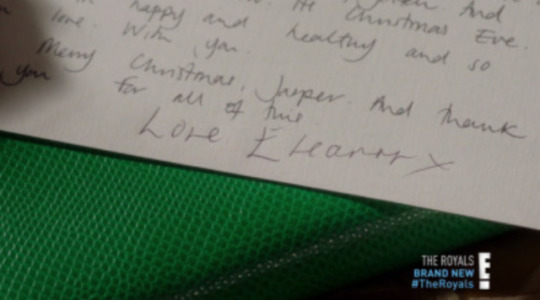 And
happy and He Christmas Eve.
love. With you. healthy and so
Merry Christmas, Jasper. And thank
you for all of this.
Love Eleanor x
THE ROYALS
BRAND NEW
#TheRoyals
E!